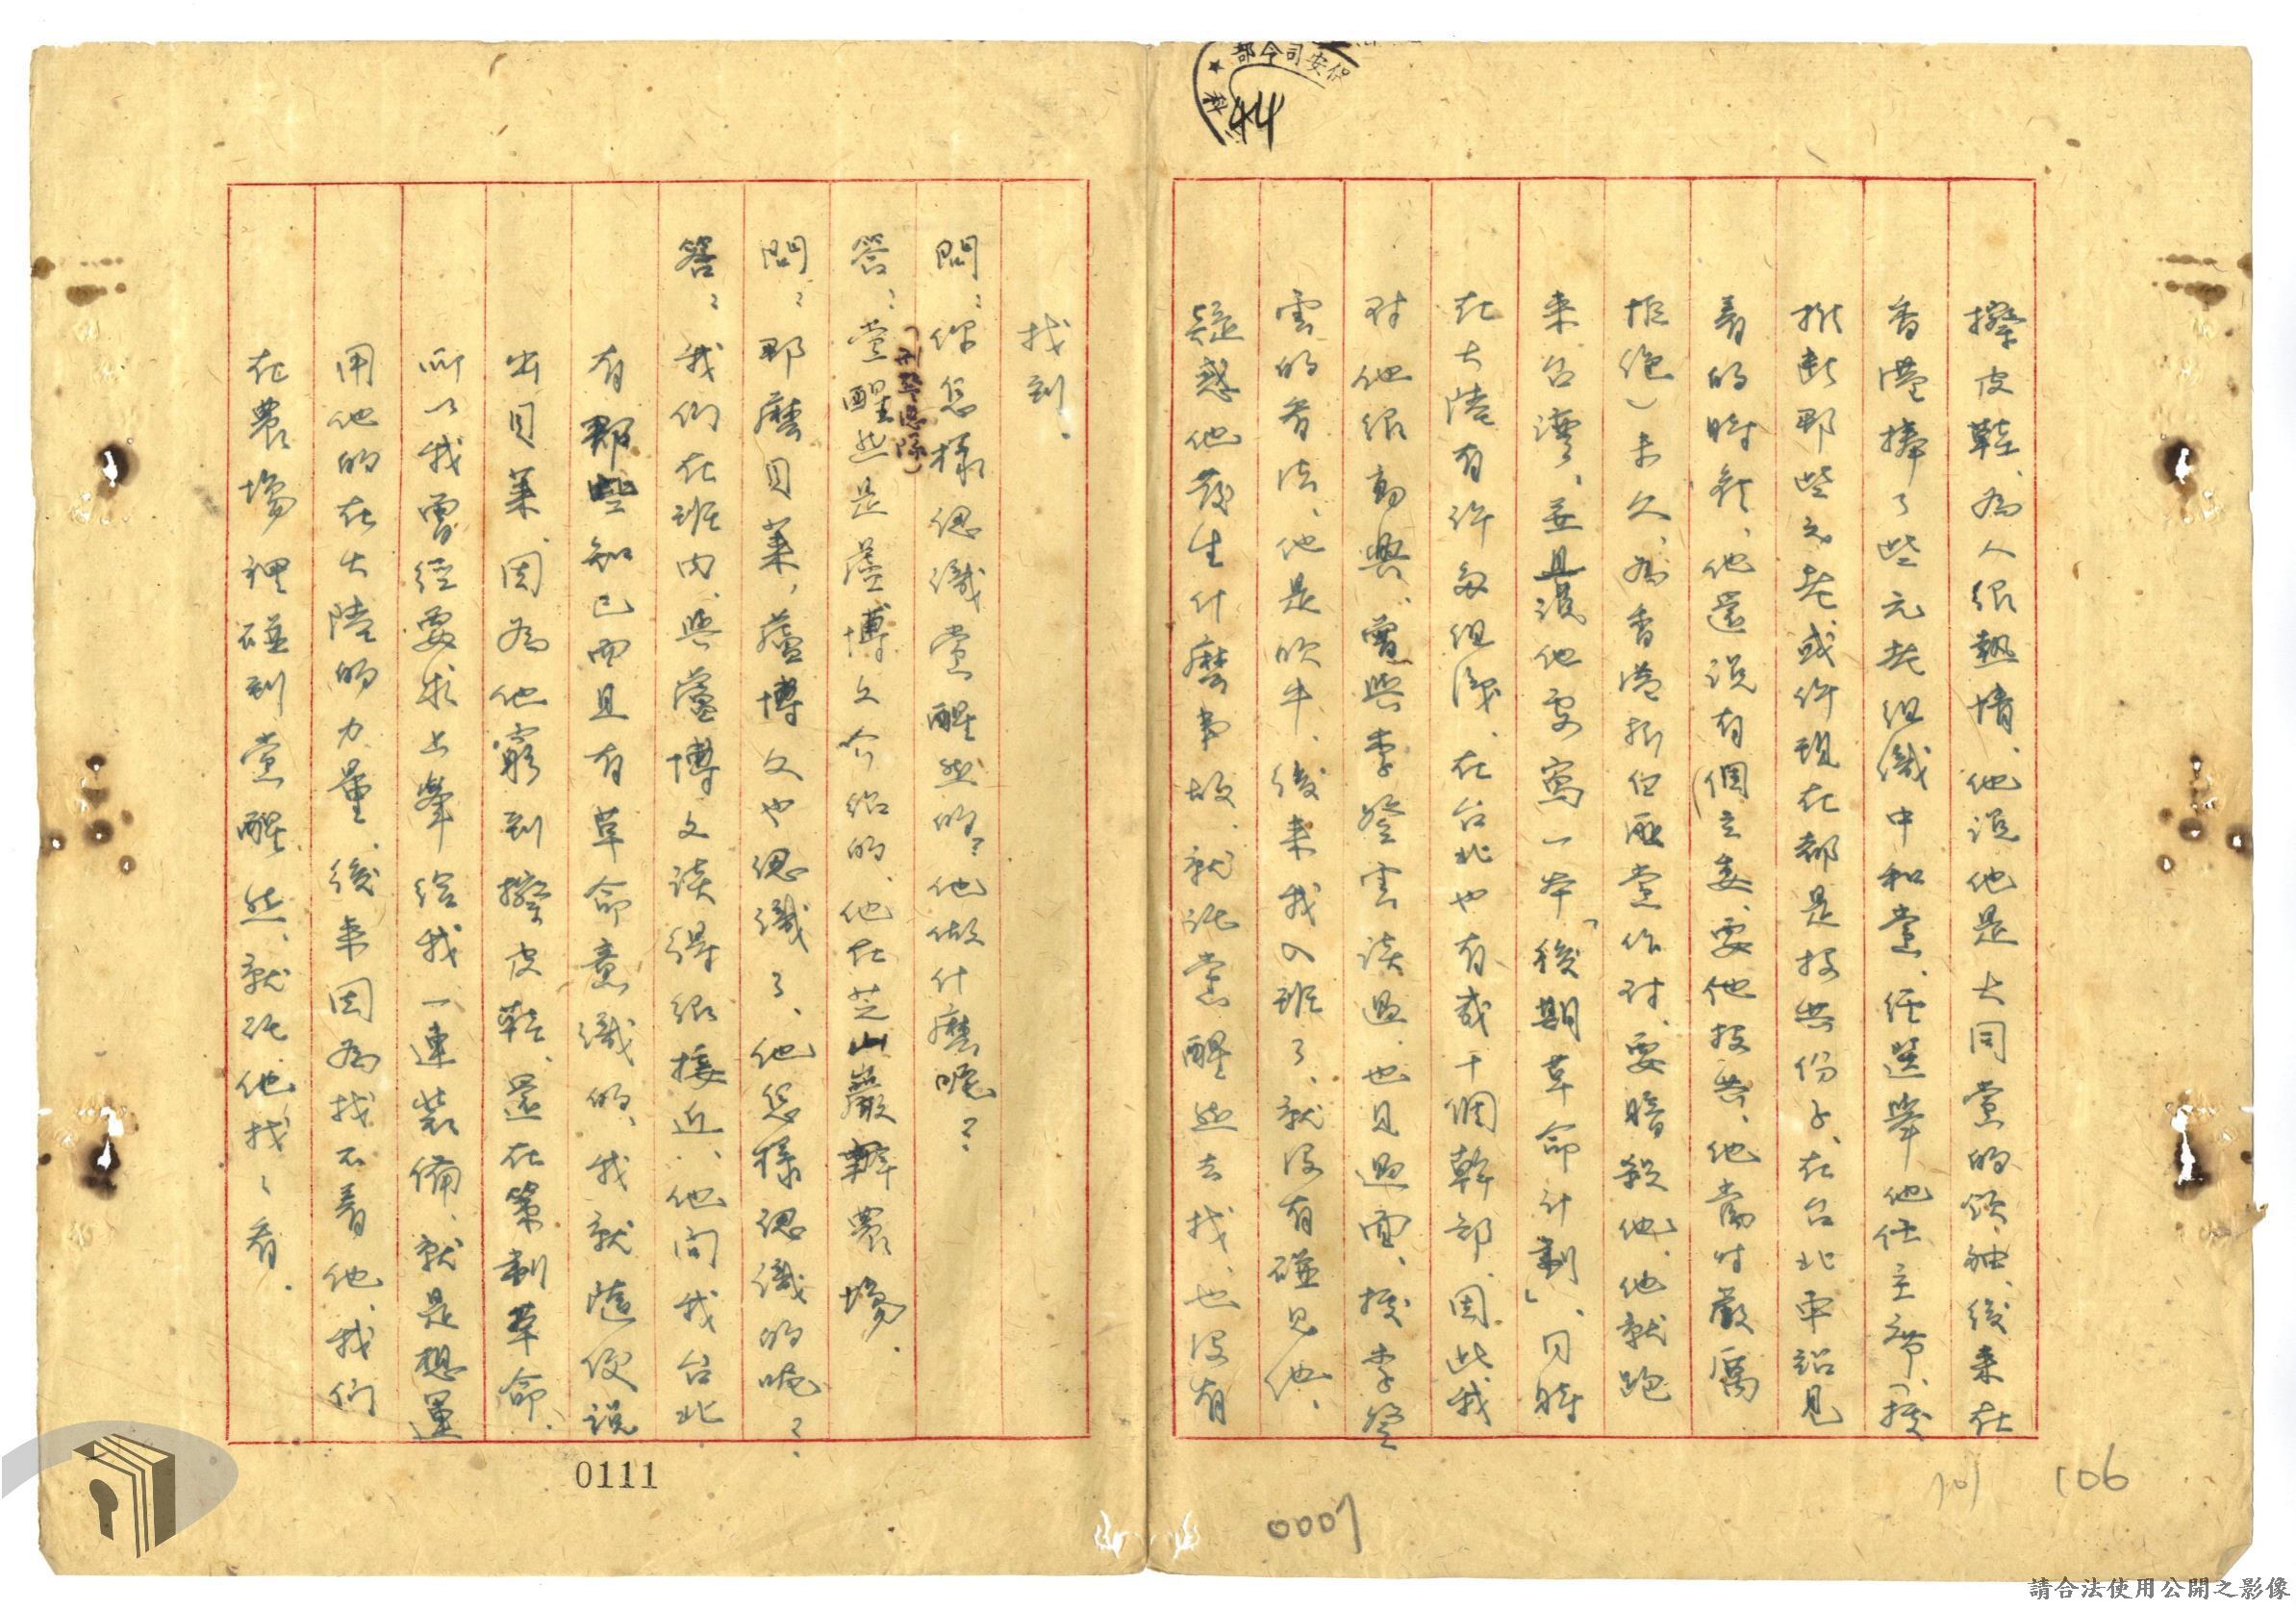 保安司令部
科
44
擦皮鞋、為人很熱情、他說他是大同黨的領袖、後來在
香港捧了些元老組織中和黨、經選舉他任主席、(據
推斷那些元老或許現在都是投共份子、在台北車站見
着的時候、他還說有個立委、要他投共、他當時嚴厲
拒絕)未久、為香港報但匪黨作对、要暗殺他、他就跑
來台灣、並且說他要寫一本「後期革命計劃」、同時
在大陸有許多組織、在台北也有或干個幹部、因此我
对他很高興、曾與李登雲談過、也見過面、據李登
雲的看法、他是吹牛、後來我入班了、就沒有碰見他、
疑惑他發生什麼事故、就託黨醒然去找、也沒有
找到.
問:你怎樣認識黨醒然的?他做什麼呢?
答:黨醒然是蘆博文介紹的、他在芝山巖幹農場.
問:那麼目業,蘆博文也認識了、他怎樣認識的呢?
答:我們在班內、與蘆博文談得很接近、他問我台北
有那些知己而且有革命意識的、我就隨便說
出目業、因為他窮到擦皮鞋、還在策劃革命、
所以我曾經要求上峯給我一連裝備、就是想運
用他的在大陸的力量、後來因為找不着他、我們
在農場裡碰到黨醒然、就託他找、看.
0111
0007
101
106
請合法使用公開之影像